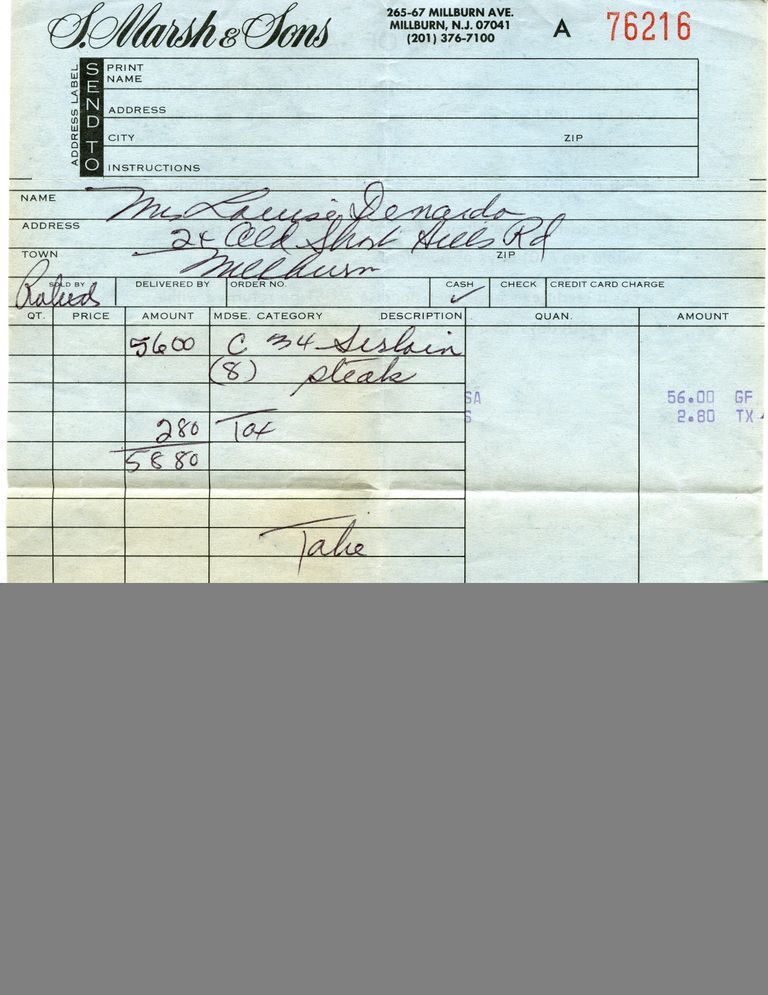 S. Marsh & Sons
265-67 MILLBURN AVE.
MILLBURN, N.J. 07041
(201) 376-7100
A 76216
ADDRESS LABEL
SEND TO
PRINT NAME
ADDRESS
CITY ZIP
INSTRUCTIONS
NAME Louise Denardo
ADDRESS 24 Old Short Hills Rd
TOWN Millburn ZIP
SOLD BY DELIVERED BY ORDER NO. CASH ✓ CHECK CREDIT CARD CHARGE
QT. PRICE AMOUNT MDSE. CATEGORY DESCRIPTION QUAN. AMOUNT
56 00 C 34 Sirloin
(8) steak
SA 56.00 GF
S 2.80 TX
2 80 Tax
58 80
Take